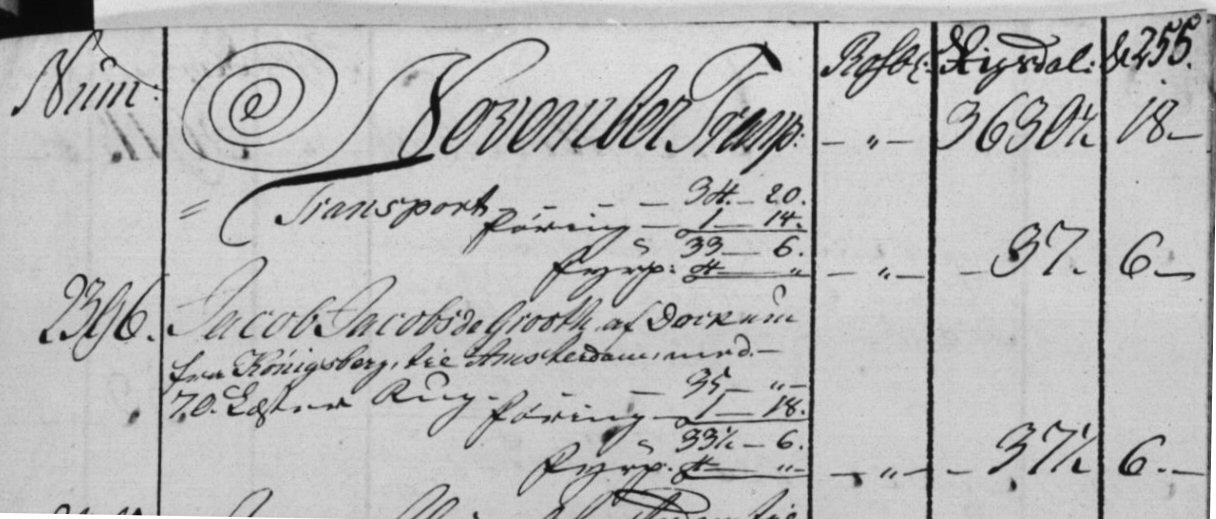 Num: November Transp: Rosbl: Rigsdal: & 255.
— „ — 3630½ 18 —
= Transport — — — 34. — 20.
föring — 1 — 14.
33 — 6.
fyrp: 4 — „ — „ — — 37. 6 —
2396. Jacob Jacobs de Grooth, af Dockum
fra Königsberg, til Amsterdam, med —
70. Læster Rug. — 35 — „ —
föring — 1 — 18.
33½ — 6.
fyrp. 4 — „ — — „ — — 37½ 6. —